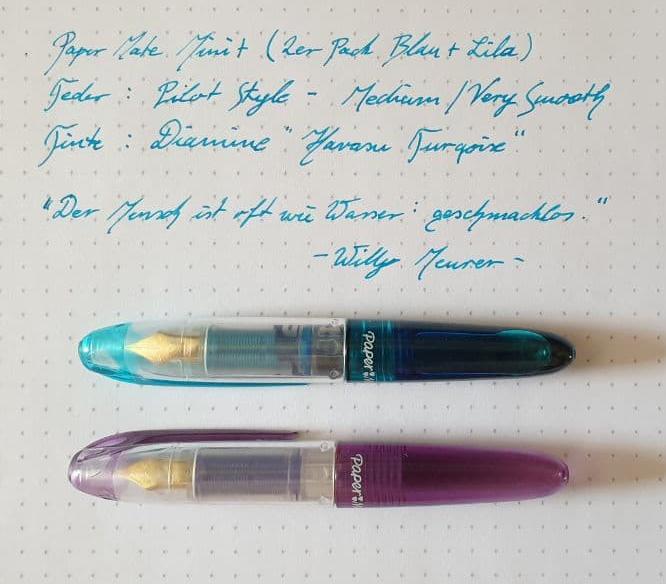 Paper Mate Mini+ (2er Pack Blau + Lila)
Feder : Pilot Style - Medium / Very Smooth
Tinte : Diamine "Havasu Turqoise"
"Der Mensch ist oft wie Wasser : geschmacklos."
- Willy Meurer -
Paper M
Paper M